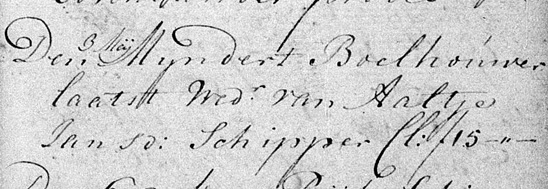 Den 3 Meij Myndert Boelhouwer
laatst Wedr. van Aaltje
Jans sd: Schipper Cl: f 15 -"-